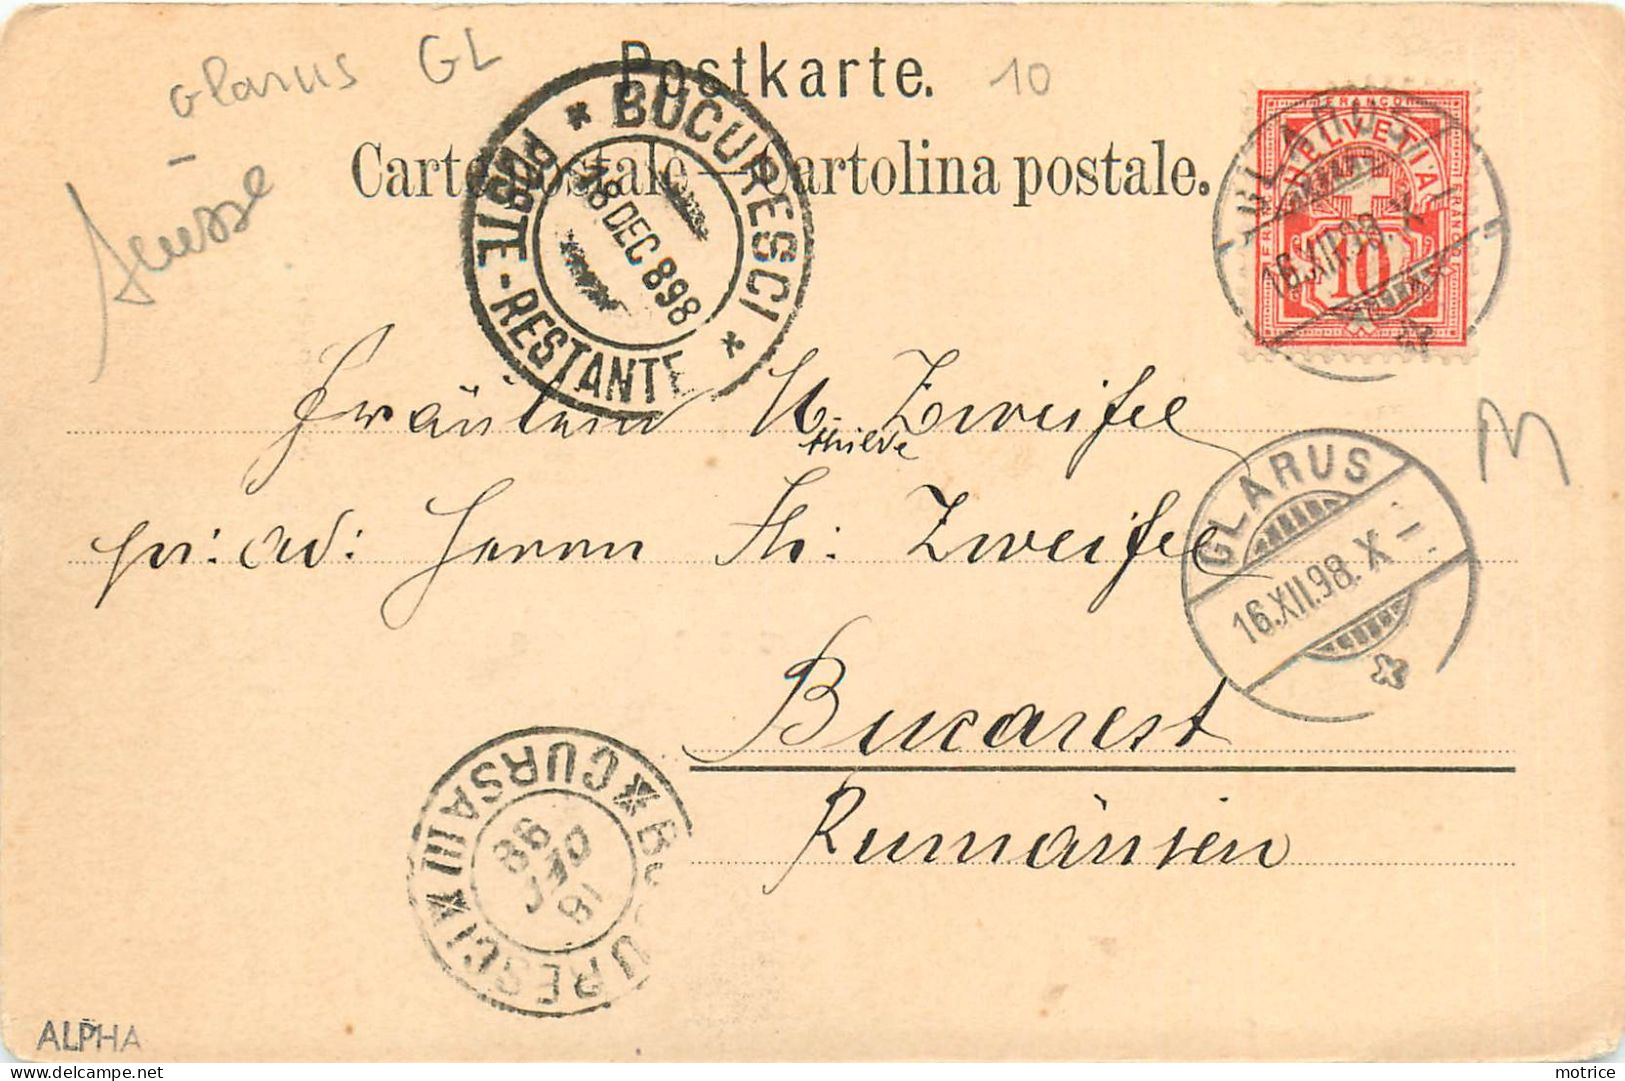 Glarus GL
Suisse
10
Postkarte.
Carte postale – Cartolina postale.
* BUCURESCI *
POSTE-RESTANTE
18 DEC 898
FRANCO
HELVETIA
FRANCO
FRANCO
10
GLARUS
16.XII.98. X–
Fräulein M. Zweifel
thilde
pr: ad: Herrn Th: Zweifel
M
GLARUS
16.XII.98. X–
Bucarest
Rumänien
BUCURESCI * CURSA III *
18 DEC 98
ALPHA
matrice